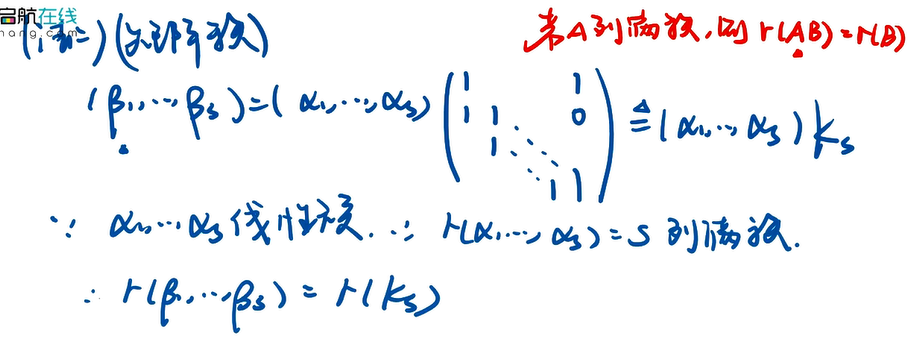 启航在线
hang.com
(法二)(矩阵秩)
若A列满秩,则 r(AB)=r(B)
(β₁,…,βₛ)=(α₁,…,αₛ) ( 1 1
1 1 0
1 ⋱ ⋱
1 1 ) ≜ (α₁,…,αₛ)Kₛ
∵ α₁,…αₛ 线性无关. ∴ r(α₁,…,αₛ)=s 列满秩.
∴ r(β₁,…,βₛ) = r(Kₛ)